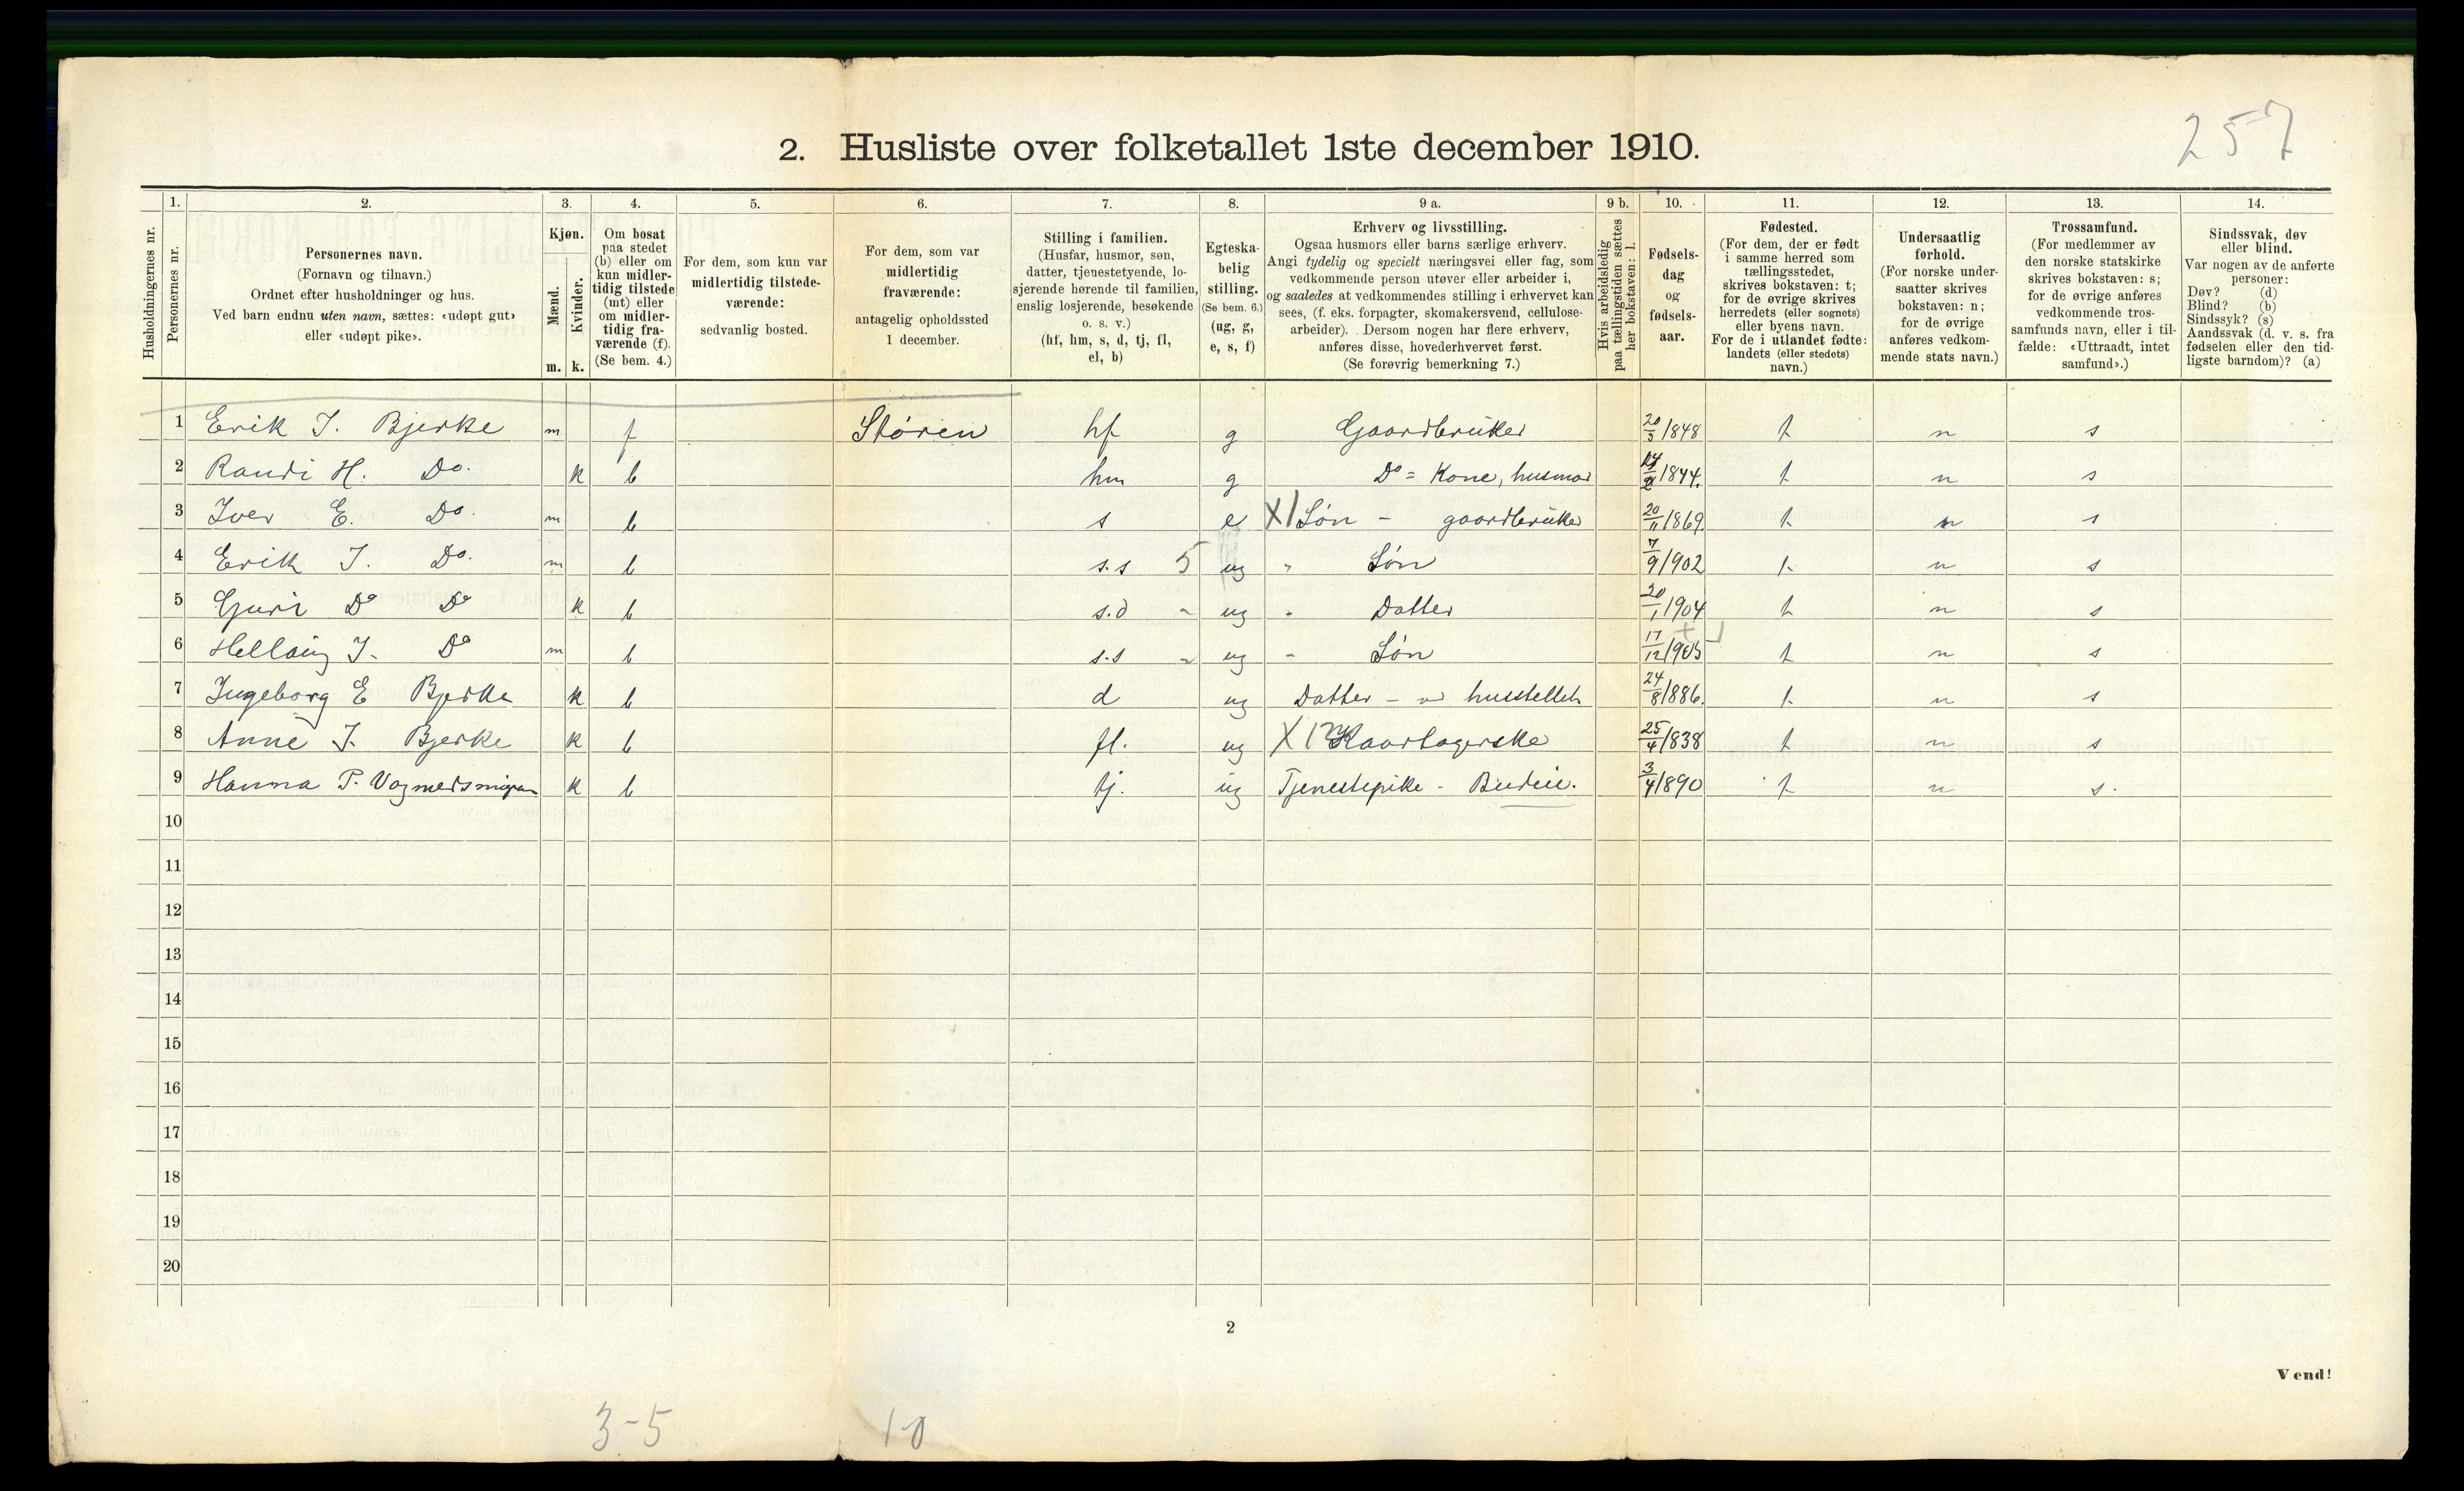 257
2. Husliste over folketallet 1ste december 1910.
Husholdningernes nr.
1.
Personernes nr.
2.
Personernes navn.
(Fornavn og tilnavn.)
Ordnet efter husholdninger og hus.
Ved barn endnu uten navn, sættes: «udøpt gut»
eller «udøpt pike».
3.
Kjøn.
Mænd.
Kvinder.
m. k.
4.
Om bosat
paa stedet
(b) eller om
kun midler-
tidig tilstede
(mt) eller
om midler-
tidig fra-
værende (f).
(Se bem. 4.)
5.
For dem, som kun var
midlertidig tilstede-
værende:
sedvanlig bosted.
6.
For dem, som var
midlertidig
fraværende:
antagelig opholdssted
1 december.
7.
Stilling i familien.
(Husfar, husmor, søn,
datter, tjenestetyende, lo-
sjerende hørende til familien,
enslig losjerende, besøkende
o. s. v.)
(hf, hm, s, d, tj, fl,
el, b)
8.
Egteska-
belig
stilling.
(Se bem. 6.)
(ug, g,
e, s, f)
9 a.
Erhverv og livsstilling.
Ogsaa husmors eller barns særlige erhverv.
Angi tydelig og specielt næringsvei eller fag, som
vedkommende person utøver eller arbeider i,
og saaledes at vedkommendes stilling i erhvervet kan
sees, (f. eks. forpagter, skomakersvend, cellulose-
arbeider). Dersom nogen har flere erhverv,
anføres disse, hovederhvervet først.
(Se forøvrig bemerkning 7.)
9 b.
Hvis arbeidsledig
paa tællingstiden sættes
her bokstaven: l.
10.
Fødsels-
dag
og
fødsels-
aar.
11.
Fødested.
(For dem, der er født
i samme herred som
tællingsstedet,
skrives bokstaven: t;
for de øvrige skrives
herredets (eller sognets)
eller byens navn.
For de i utlandet fødte:
landets (eller stedets)
navn.)
12.
Undersaatlig
forhold.
(For norske under-
saatter skrives
bokstaven: n;
for de øvrige
anføres vedkom-
mende stats navn.)
13.
Trossamfund.
(For medlemmer av
den norske statskirke
skrives bokstaven: s;
for de øvrige anføres
vedkommende tros-
samfunds navn, eller i til-
fælde: «Uttraadt, intet
samfund».)
14.
Sindssvak, døv
eller blind.
Var nogen av de anførte
personer:
Døv? (d)
Blind? (b)
Sindssyk? (s)
Aandssvak (d. v. s. fra
fødselen eller den tid-
ligste barndom)? (a)
1 Erik J. Bjerke m f Støren hf g Gaardbruker 20/3 1848 t n s
2 Randi H. Do. k b hm g Do = Kone, husmor 1844. t n s
3 Iver E. Do. m b s e X1 Søn - gaardbruker 20/11 1869. t n s
4 Erik J. Do. m b s.s 5 ug " Søn 7/9 1902 t n s
5 Guri Do Do k b s.d - ug " Datter 20/1 1904 t n s
6 J. Do m b s.s - ug - Søn 17/12 1905 t n s
7 Ingeborg E Bjerke k b d ug Datter - v husstellet 24/8 1886. t n s
8 Anne J. Bjerke k b fl. ug X12 Kaartagerske 25/4 1838 t n s
9 Hanna P. k b tj. ug Tjenestepike - Budeie. 3/4 1890 t n s.
10
11
12
13
14
15
16
17
18
19
20
2
Vend!
3-5 1-0